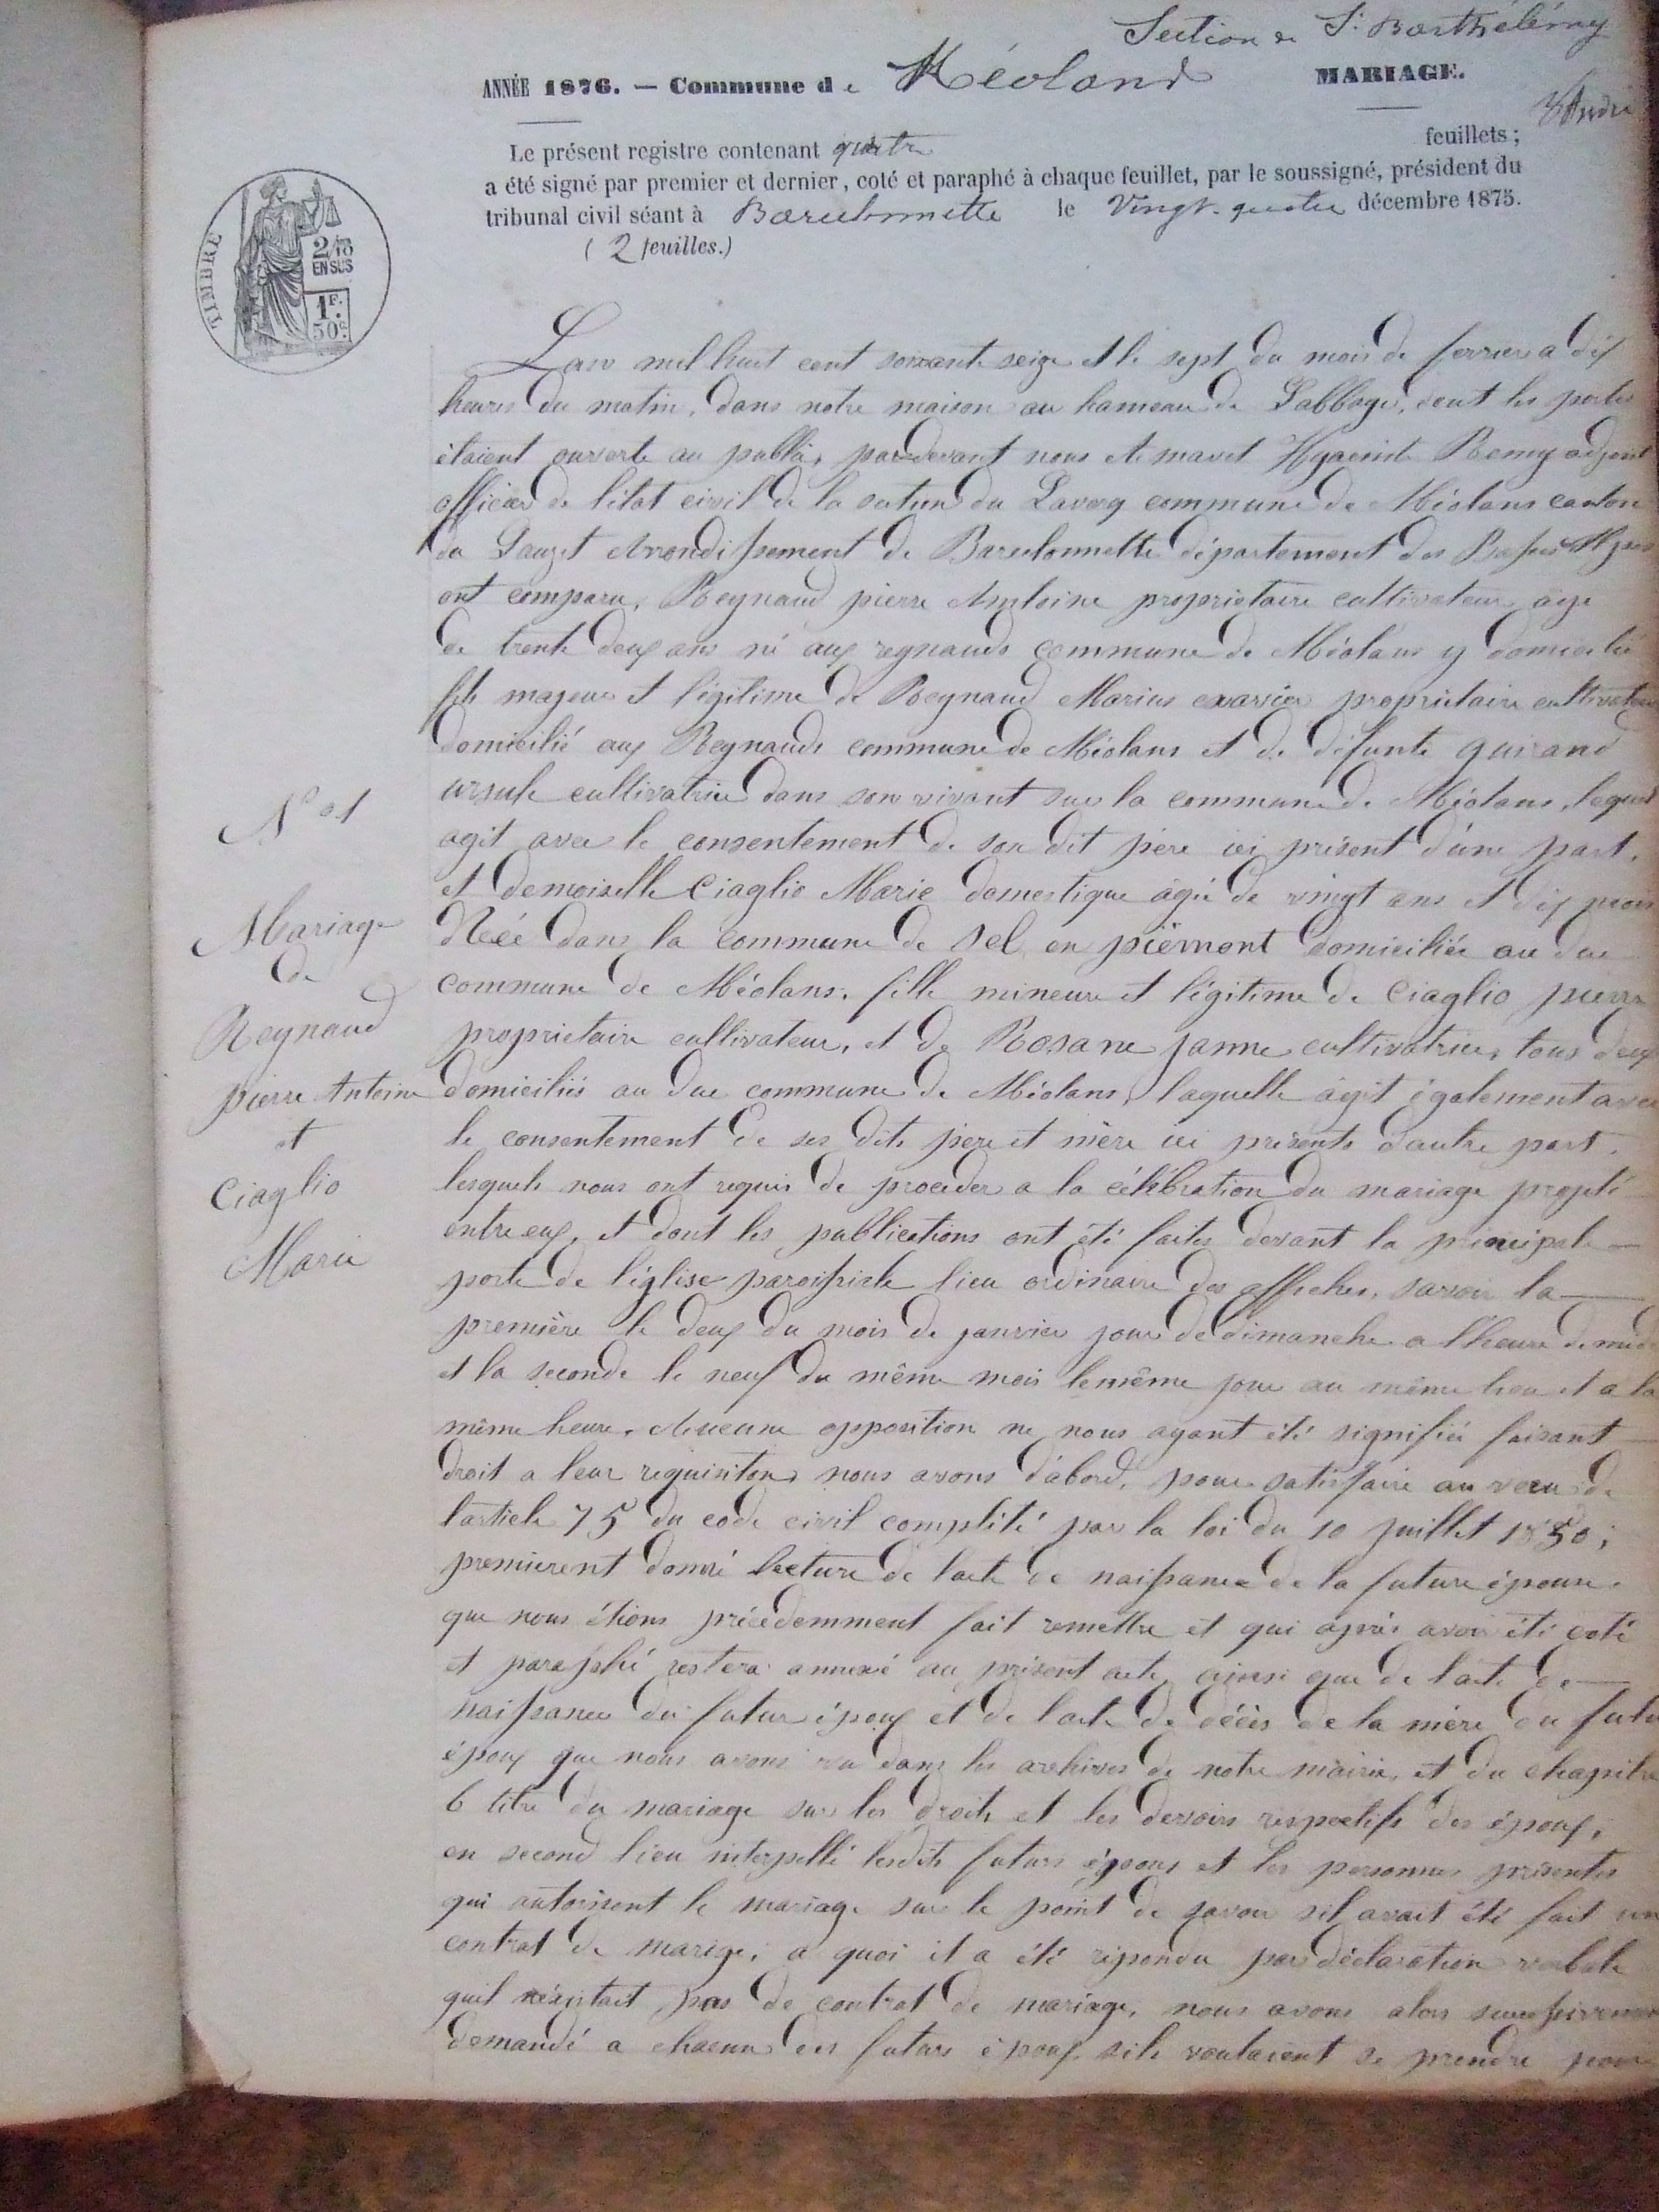 Section de St Barthélémy
ANNÉE 1876. — Commune de Méoland MARIAGE.
André
Le présent registre contenant quatre feuillets ;
a été signé par premier et dernier, coté et paraphé à chaque feuillet, par le soussigné, président du
tribunal civil séant à Barcelonnette le Vingt-quatre décembre 1875.
(2 feuilles.)
TIMBRE
2/10
EN SUS
1F.
50c
Lan mil huit cent soixante seize et le sept du mois de fevrier a dix
heures du matin, dans notre maison au hameau de Labbaye, dont les portes
étaient ouverte au public, pardevant nous Hyacinte Remy adjoint
officier de l'état civil de la section du Laverq commune de Méolans canton
du Lauzet Arrondissement de Barcelonnette département des Basses Alpes
ont comparu, Reynaud pierre Antoine propriétaire cultivateur âgé
de trente deux ans né aux reynauds commune de Méolans y domicilié
fils majeur et légitime de Reynaud Marius exavier propriétaire cultivateur
domicilié aux Reynauds commune de Méolans et de défunte guirand
ursule cultivatrice dans son vivant sur la commune de Méolans, lequel
agit avec le consentement de son dit père ici présent d'une part.
et demoiselle Ciaglio Marie domestique agée de vingt ans et dix mois
Néé dans la commune de Sel en pièmont domiciliée au duc
commune de Méolans, fille mineure et légitime de Ciaglio pierre
propriétaire cultivateur, et de Rosane janne cultivatrice, tous deux
domiciliés au duc commune de Méolans, laquelle agit également avec
le consentement de ses dits père et mère ici présents d'autre part.
lesquels nous ont requis de proceder a la célébration du mariage projeté
entre eux, et dont les publications ont été faites devant la principale
porte de l'église paroissiale lieu ordinaire des affiches, savoir la
première le deux du mois de janvier jour de dimanche a l'heure de midi
et la seconde le neuf du même mois le même jour au même lieu et a la
même heure. Aucune opposition ne nous ayant été signifiée faisant
droit a leur requisition nous avons d'abord, pour satisfaire au voeu de
l'article 75 du code civil complété par la loi du 10 juillet 1850;
premierent donné lecture de l'acte de naissance de la future épouse.
que nous étions précédemment fait remettre et qui après avoir été coté
et paraphé restera annexé au présent acte, ainsi que de l'acte de
naissance du futur époux et de l'acte de décès de la mère du futur
époux que nous avons vu dans les archives de notre mairie, et du chapitre
6 titre du mariage sur les droits et les devoirs respectifs des époux,
en second lieu interpellé lesdits futurs époux et les personnes présentes
qui autorisent le mariage sur le point de savoir sil avait été fait un
contrat de marige, a quoi il a été répondu par déclaration verbale
quil n'éxistait pas de contrat de mariage, nous avons alors successivement
demandé a chacun des futurs époux sils voulaient se prendre pour
N° 1
Mariage
de
Reynaud
pierre Antoine
et
Ciaglio
Marie